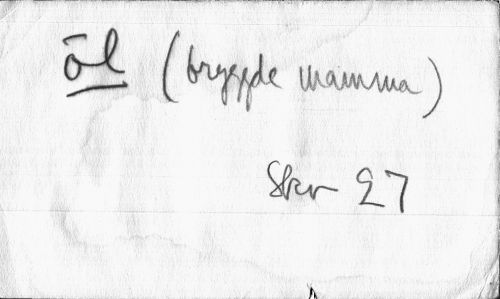 öl (bryggde mamma)
Skr 27